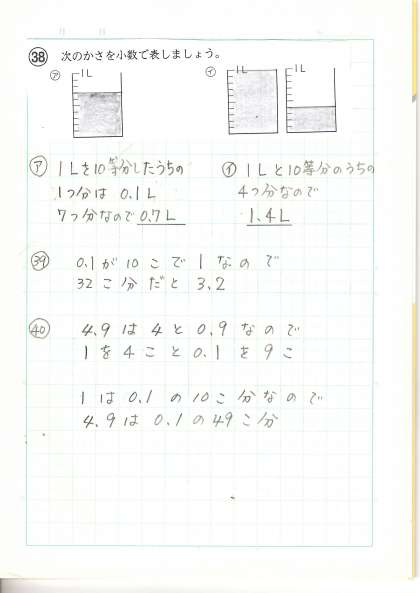 月 日
38 次のかさを小数で表しましょう。
ア 1L イ 1L 1L
ア 1Lを10等分したうちの
1つ分は 0.1L
7つ分なので 0.7L
イ 1Lと10等分のうちの
4つ分なので
1.4L
39 0.1が10こで1なので
32こ分だと3.2
40 4.9は4と0.9なので
1を4こと0.1を9こ
1は0.1の10こ分なので
4.9は0.1の49こ分